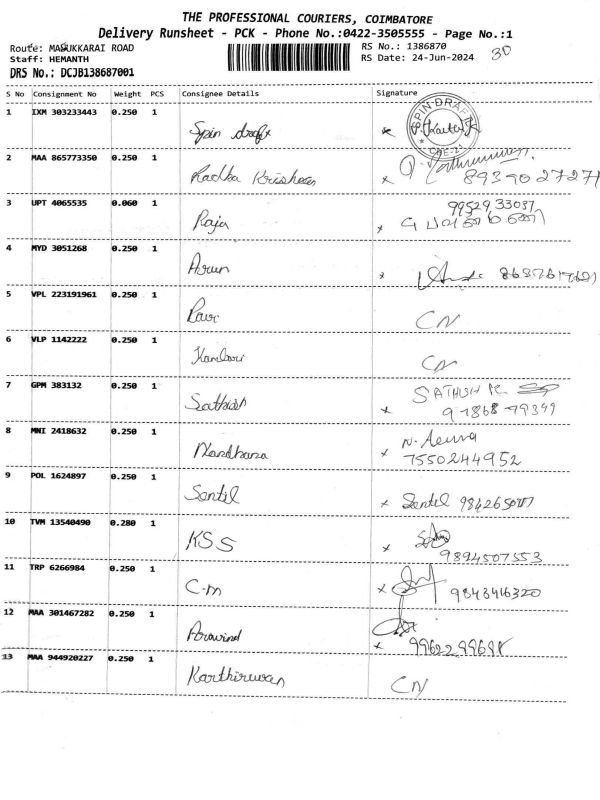 THE PROFESSIONAL COURIERS, COIMBATORE
Delivery Runsheet - PCK - Phone No.:0422-3505555 - Page No.:1
Route: MADUKKARAI ROAD
RS No.: 1386870
30
Staff: HEMANTH
RS Date: 24-Jun-2024
DRS No.: DCJB138687001
S No Consignment No Weight PCS Consignee Details Signature
1 IXM 303233443 0.250 1 Spin draft
SPIN DRAFT
CBE-21
2 MAA 865773350 0.250 1 Radha Krishnan
8939027271
3 UPT 4065535 0.060 1 Raja x
9952933037
4 MYD 3051268 0.250 1 Arun x
5 VPL 223191961 0.250 1 Ravi CN
6 VLP 1142222 0.250 1 CN
7 GPM 383132 0.250 1 Sathish x SATHISH K
8 MNI 2418632 0.250 1 Nandhana x
7550244952
9 POL 1624897 0.250 1 Sentil x Sentil
10 TVM 13540490 0.280 1 KSS x
9894507553
11 TRP 6266984 0.250 1 C.M x 9843416320
12 MAA 301467282 0.250 1 Aravind x
13 MAA 944920227 0.250 1 CN